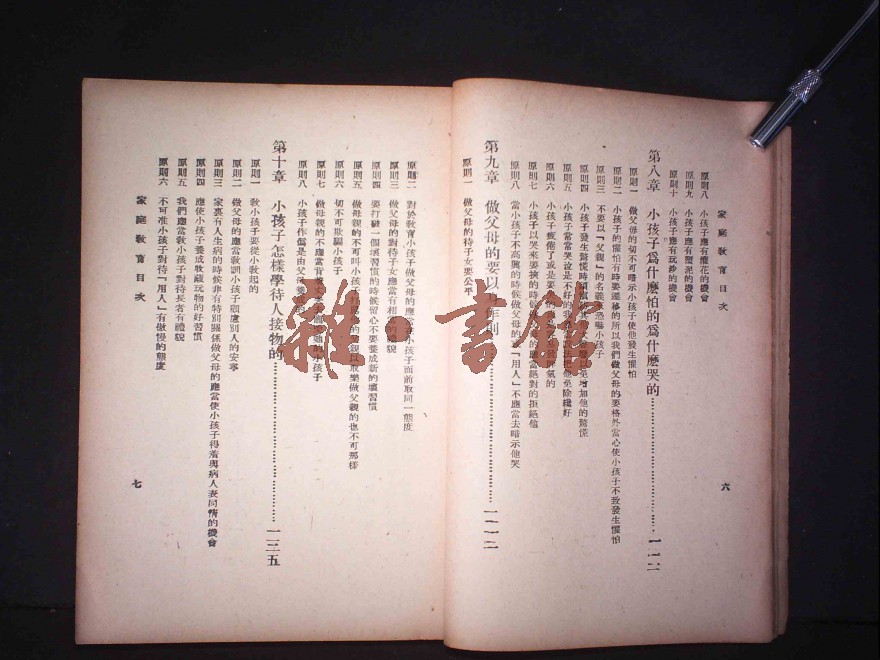 家庭教育目次
六
原則八 小孩子應有攬花的機會
原則九 小孩子應有塑泥的機會
原則十 小孩子應有玩沙的機會
第八章 小孩子爲什麽怕的爲什麽哭的 一一二
原則一 做父母的切不可暗示小孩子使他發生懼怕
原則二 小孩子的懼怕有時要遷移的所以我們做父母的要格外當心使小孩子不致發生懼怕
原則三 不要以「父親」的名義來恐嚇小孩子
原則四 小孩子發生驚慌時 以免增加他的驚慌
原則五 小孩子常常哭泣是不好的我 把他免除纔好
原則六 小孩子疲倦了或是要
原則七 小孩子以哭來要挾的時候做 應當絕對的拒絕他
原則八 當小孩子不高興的時候做父母的 「用人」不應當去暗示他哭
第九章 做父母的要以 作則
原則一 做父母的待子女要公平
原則二 對於教育小孩子做父母的應當在小孩子面前取同一態度
原則三 做父母的對待子女應當有相當的禮貌
原則四 要打破一個壞習慣的時候留心不要養成新的壞習慣
原則五 做母親的不可叫小孩子 父親以取樂做父親的也不可那樣
原則六 切不可欺騙小孩子
原則七 做母親的不應當背着丈夫 小孩子
原則八 小孩子作僞是由父母養成的
第十章 小孩子怎樣學待人接物的 一三五
原則一 教小孩子要從小教起的
原則二 做父母的應當教訓小孩子顧慮別人的安寧
原則三 家裏有人生病的時候非有特別關係做父母的應當使小孩子得着與病人表同情的機會
原則四 應使小孩子養成收藏玩物的好習慣
原則五 我們應當教小孩子對待長者有禮貌
原則六 不可准小孩子對待「用人」有傲慢的態度
家庭教育目次
七
雜·書館